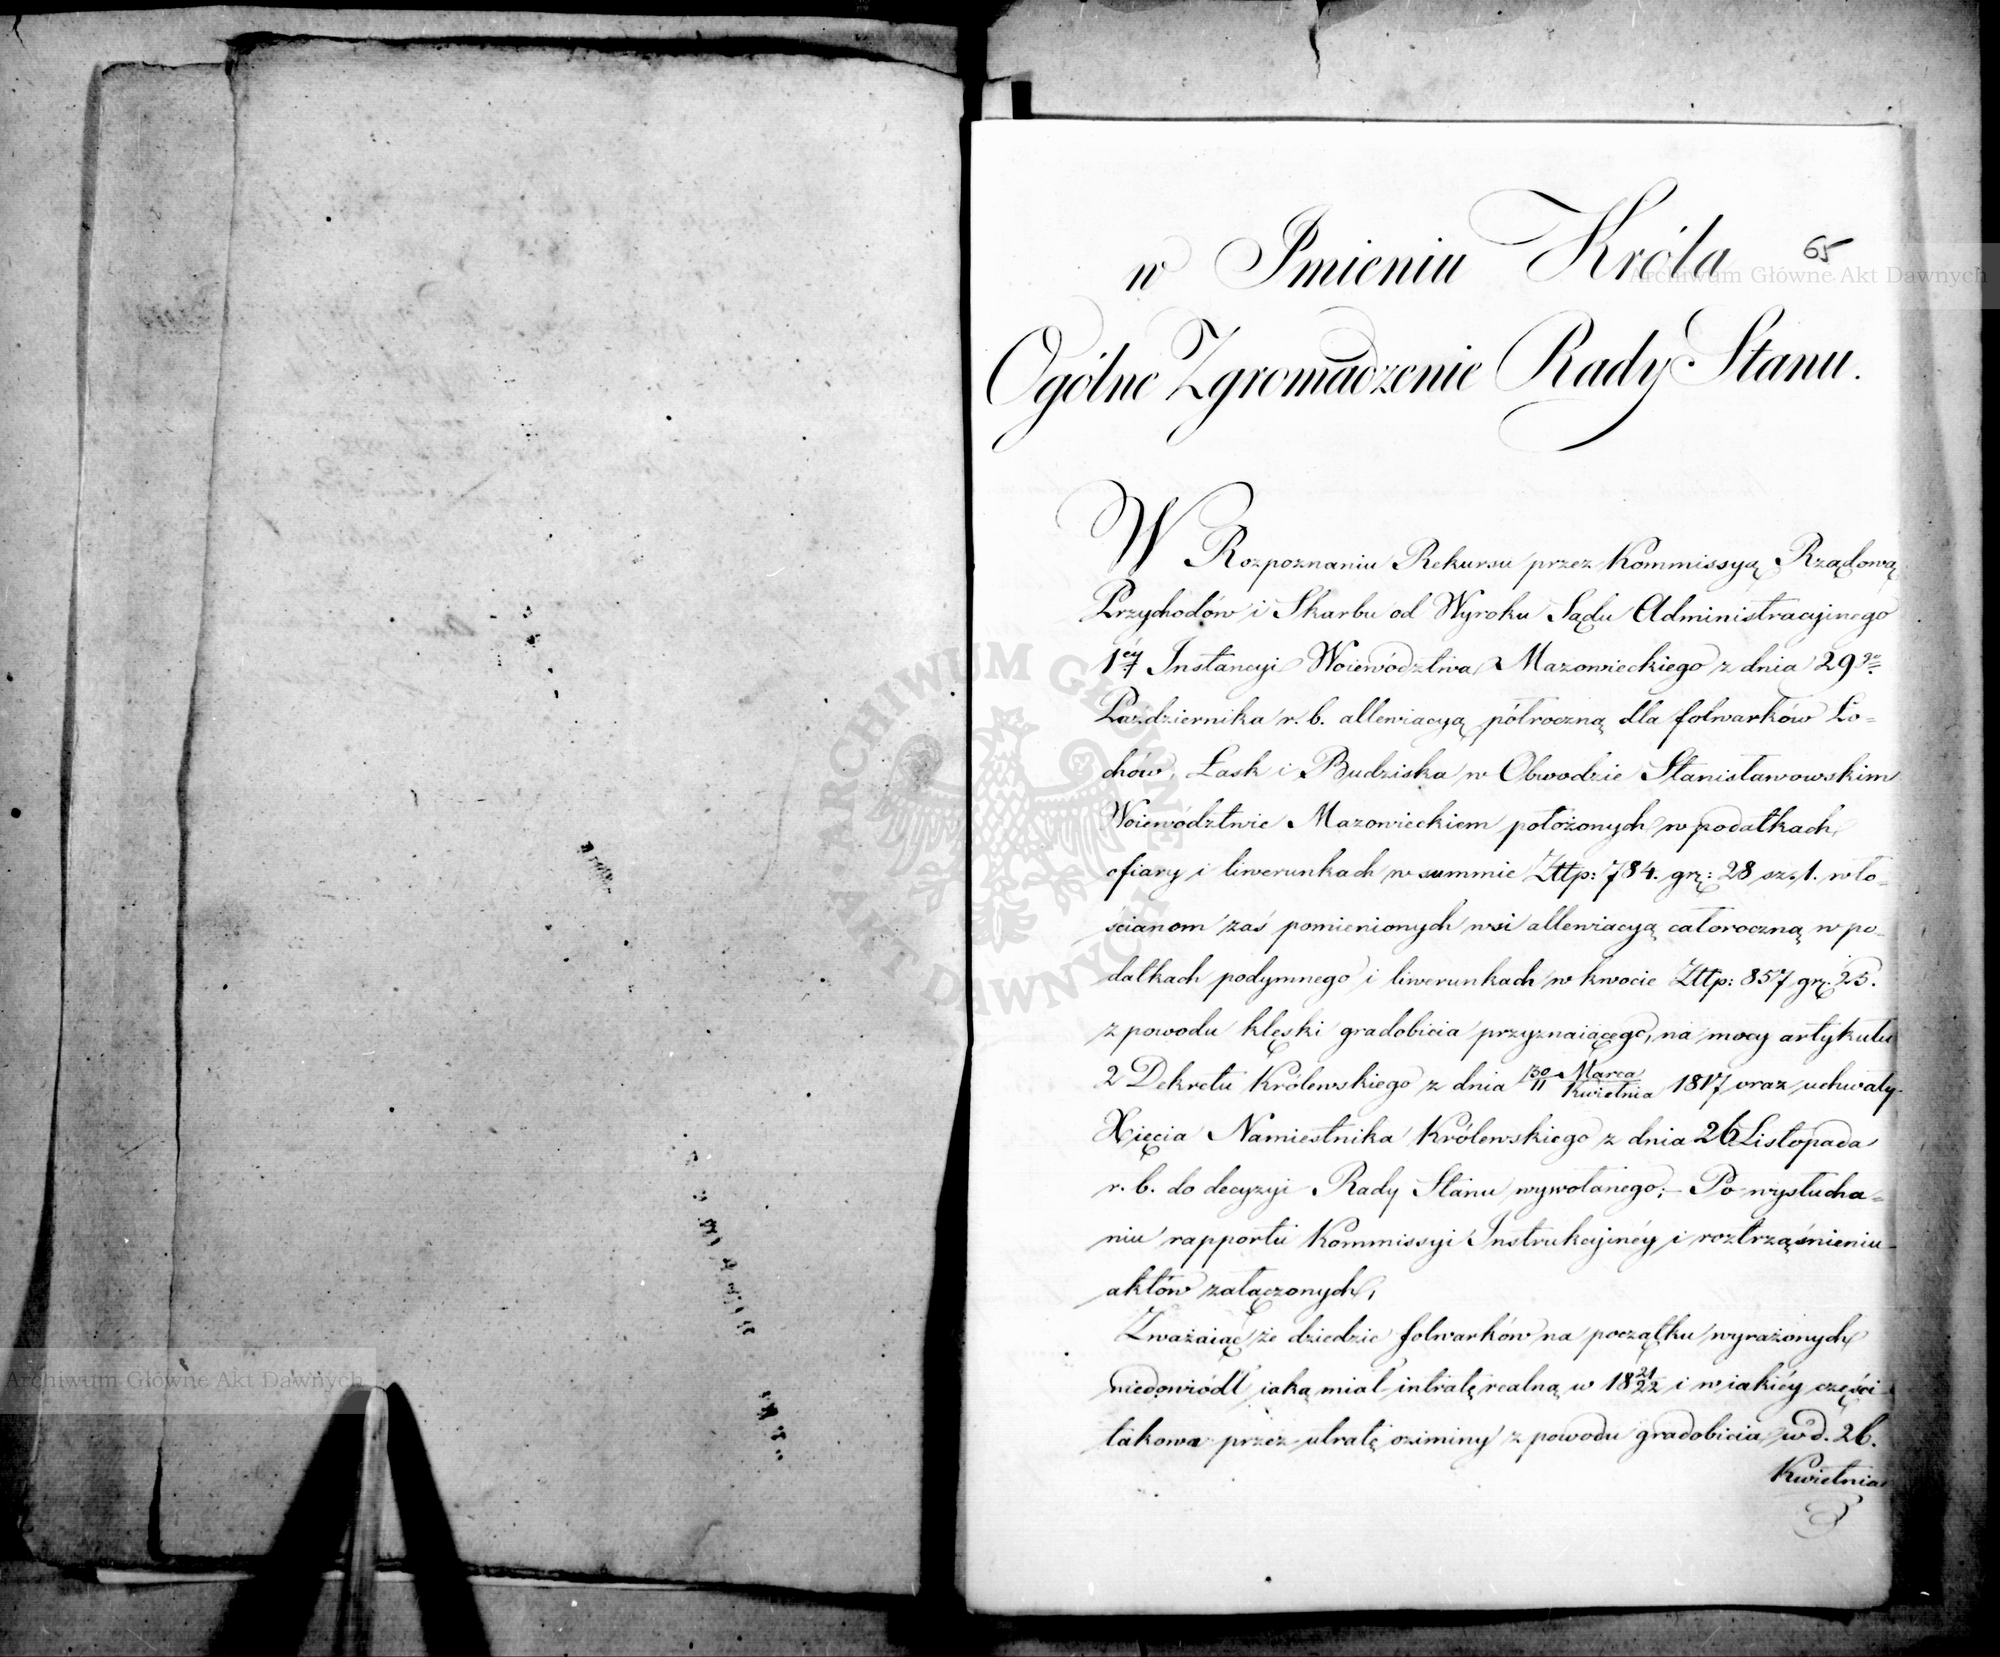 65
w Imieniu Króla
Ogólne Zgromadzenie Rady Stanu.
W Rozpoznaniu Rekursu przez Kommissyą Rządową
Przychodów i Skarbu od Wyroku Sądu Administracyinego
1éy Instancyi Woiewództwa Mazowieckiego z dnia 29go
Października r. b. allewiacyą półroczną dla folwarków Ło=
chów, Łask i Budziska w Obwodzie Stanisławowskim
Woiewództwie Mazowieckiem położonych w podatkach
ofiary i liwerunkach w summie Złtp: 784. gr: 28 sz. 1. wło=
ścianom zaś pomienionych wsi allewiacyą całoroczną w po=
datkach podymnego i liwerunkach w kwocie Złtp: 857 gr. 25.
z powodu klęski gradobicia przyznaiącego, na mocy artykułu
2 Dekretu Królewskiego z dnia 30 Marca / 11 Kwietnia 1817 oraz uchwały
Xięcia Namiestnika Królewskiego z dnia 26 Listopada
r. b. do decyzyi Rady Stanu wywołanego; – Po wysłucha=
niu rapportu Kommissyi Instrukcyinéy i roztrząśnieniu
aktów załączonych,
Zważaiąc że dziedzic folwarków na początku wyrażonych
niedowiódł iaką miał intratę realną w 18 21/22 i w iakiéy części
takowa przez utratę oziminy z powodu gradobicia w d. 26.
Kwietnia
Archiwum Główne Akt Dawnych
Archiwum Główne Akt Dawnych
ARCHIWUM GŁÓWNE AKT DAWNYCH